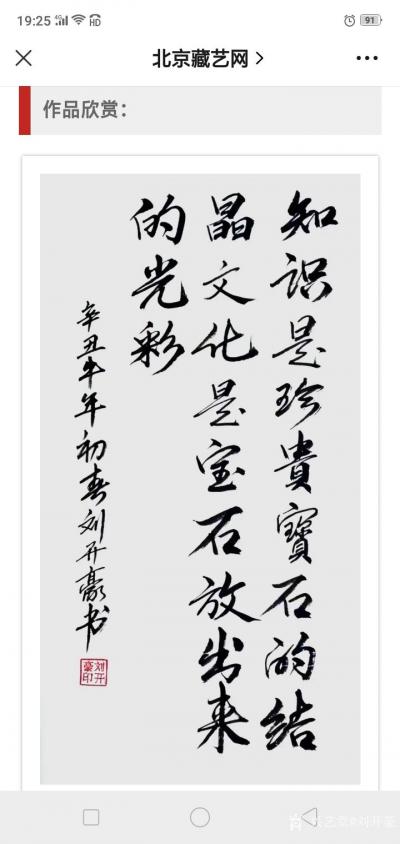 19:25
4G
HD
91
北京藏艺网
作品欣赏：
知识是珍貴寶石的结
晶文化是宝石放出来
的光彩
辛丑牛年初春刘开豪书
刘开豪印
艺堂@刘开豪